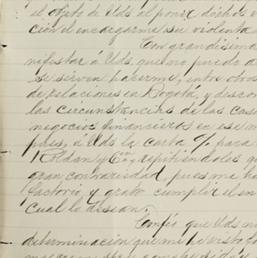 el objeto de Uds. al poner dichos
ción el encargarme su violenta
Con grandísima
nifestar a Uds. que no puedo a
se sirven hacerme, entre otros
de relaciones en Bogotá y descon
las circunstancias de las casas
negocios financieros en ese
pues, á Uds. la carta c/. para
Roldan y Cía., repitiéndoles q
gran contrariedad pues me ha
factorio y grato cumplir el en
cual lo desean.
Confío que Uds.
determinación que me he visto